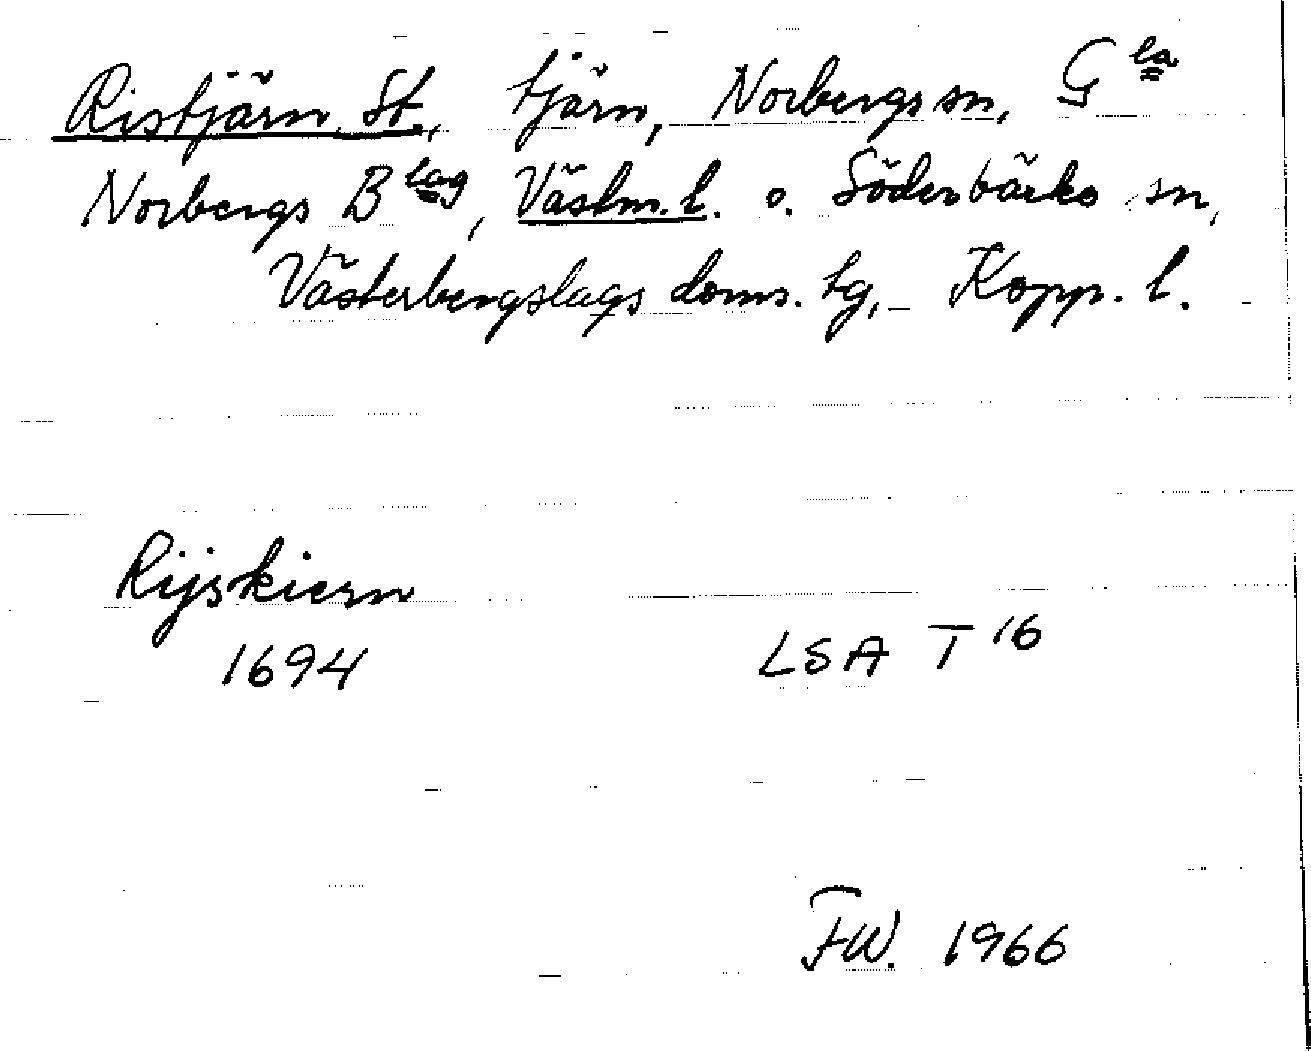 Ristjärn, St., tjärn, Norbergs sn, G:la
Norbergs B:lag, Västm. l. o. Söderbärke sn,
Västerbergslags doms. tg, Kopp. l.
Rijskiern
1694 LSA T 16
FW. 1966